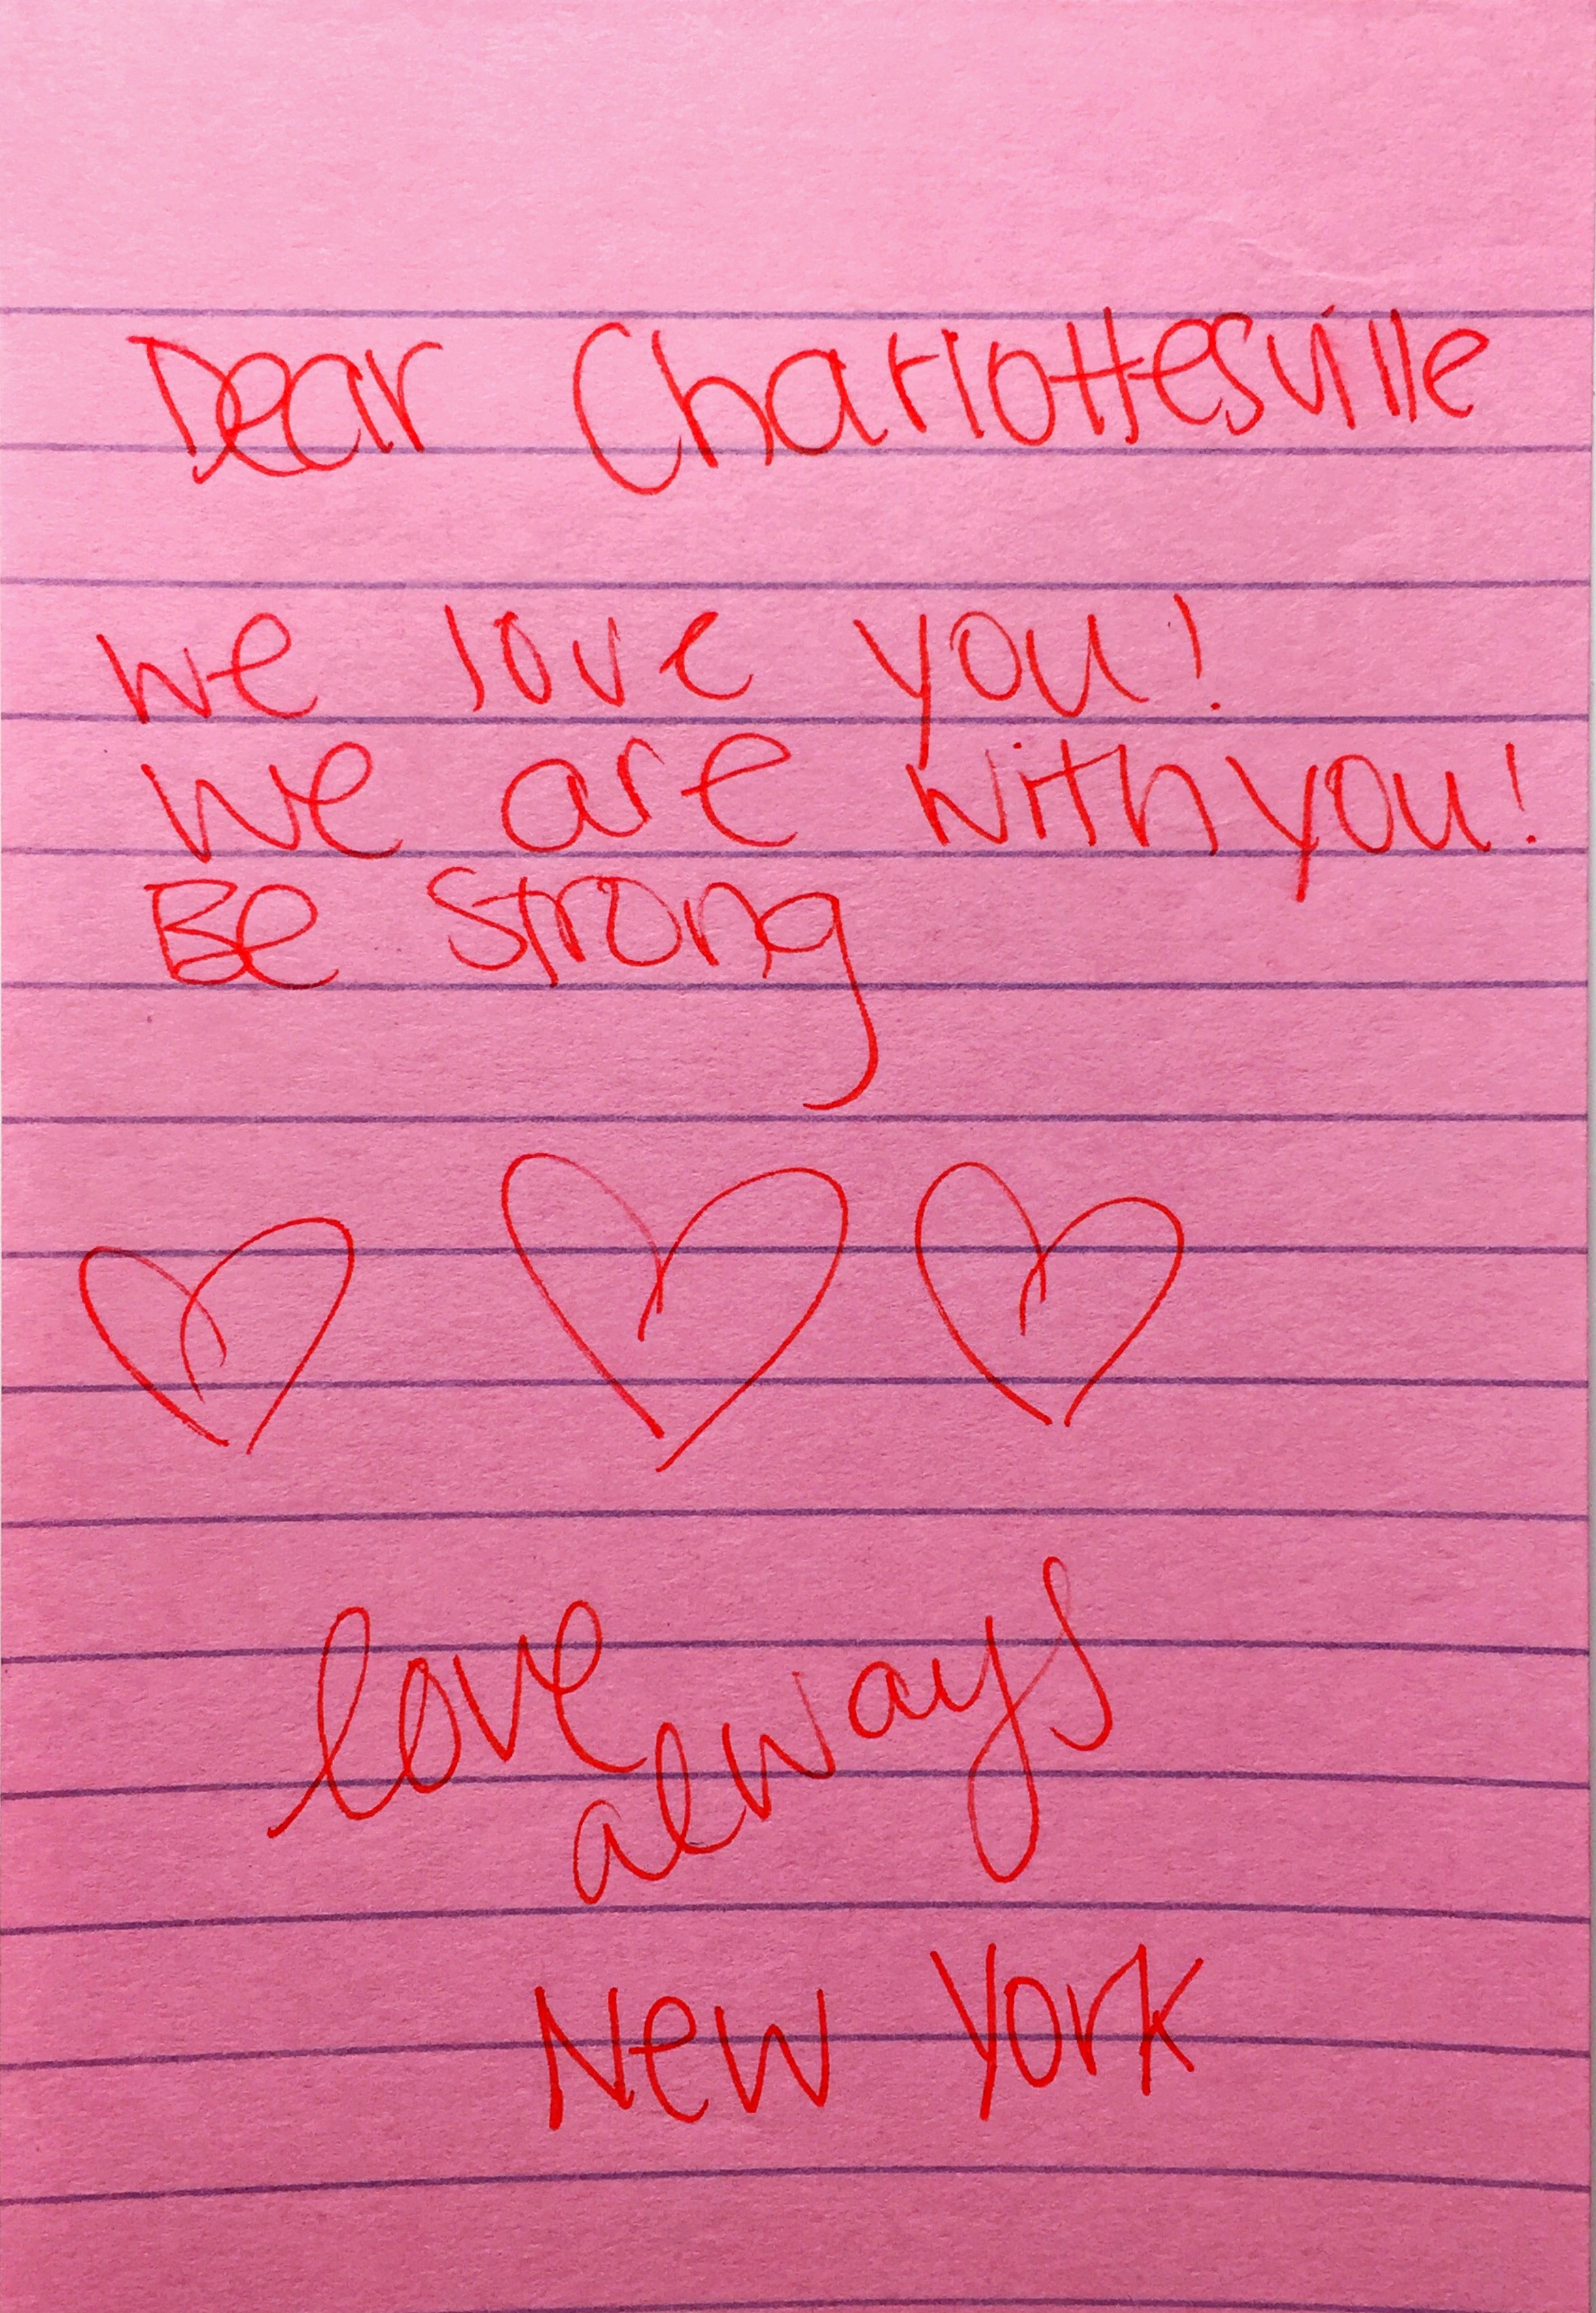 Dear Charlottesville
we love you!
we are with you!
Be Strong
love
always
New York